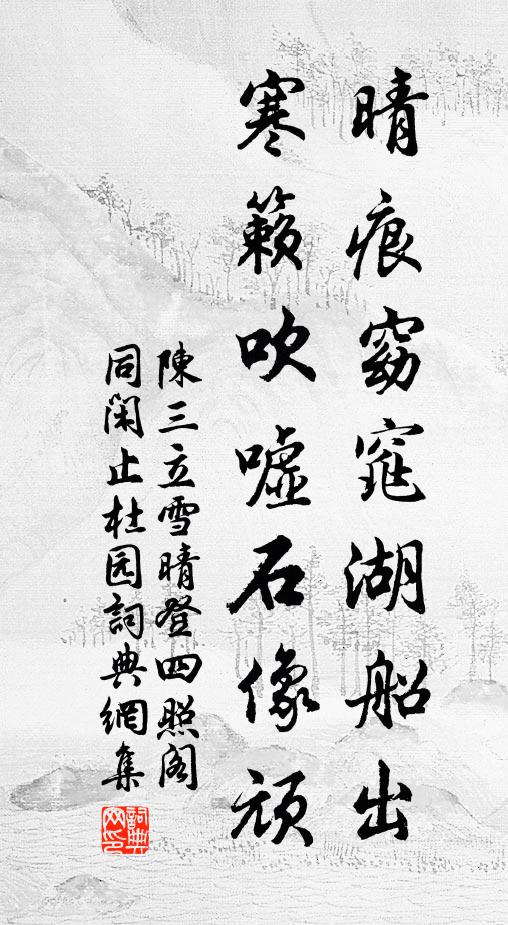 晴痕窈窕湖船出
寒籟吹噓石像頑
陳三立雪晴登四照阁
同閑止杜园詞典網集
詞典网印